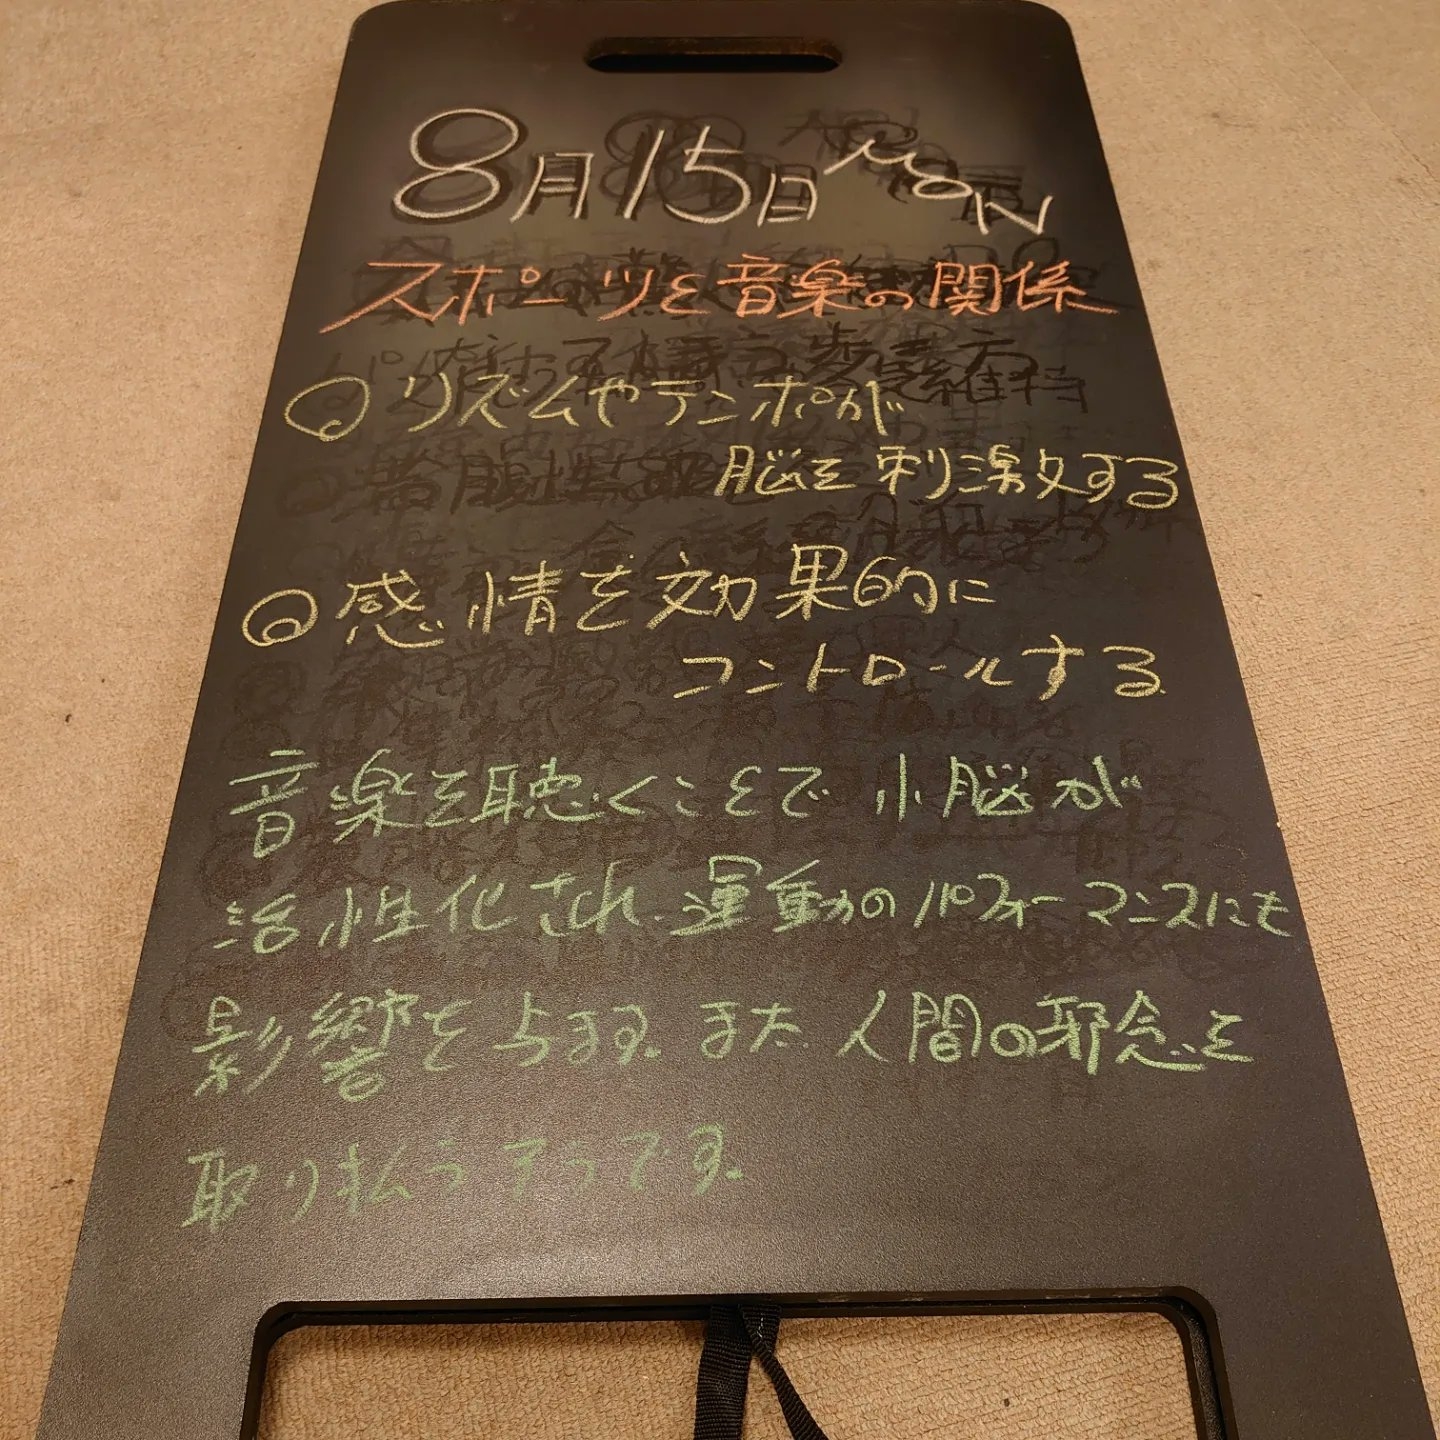 8月15日 MON
スポーツと音楽の関係
◎リズムやテンポが
脳を刺激する
◎感情を効果的に
コントロールする
音楽を聴くことで小脳が
活性化され、運動のパフォーマンスにも
影響を与える。また、人間の邪念を
取り払うそうです。